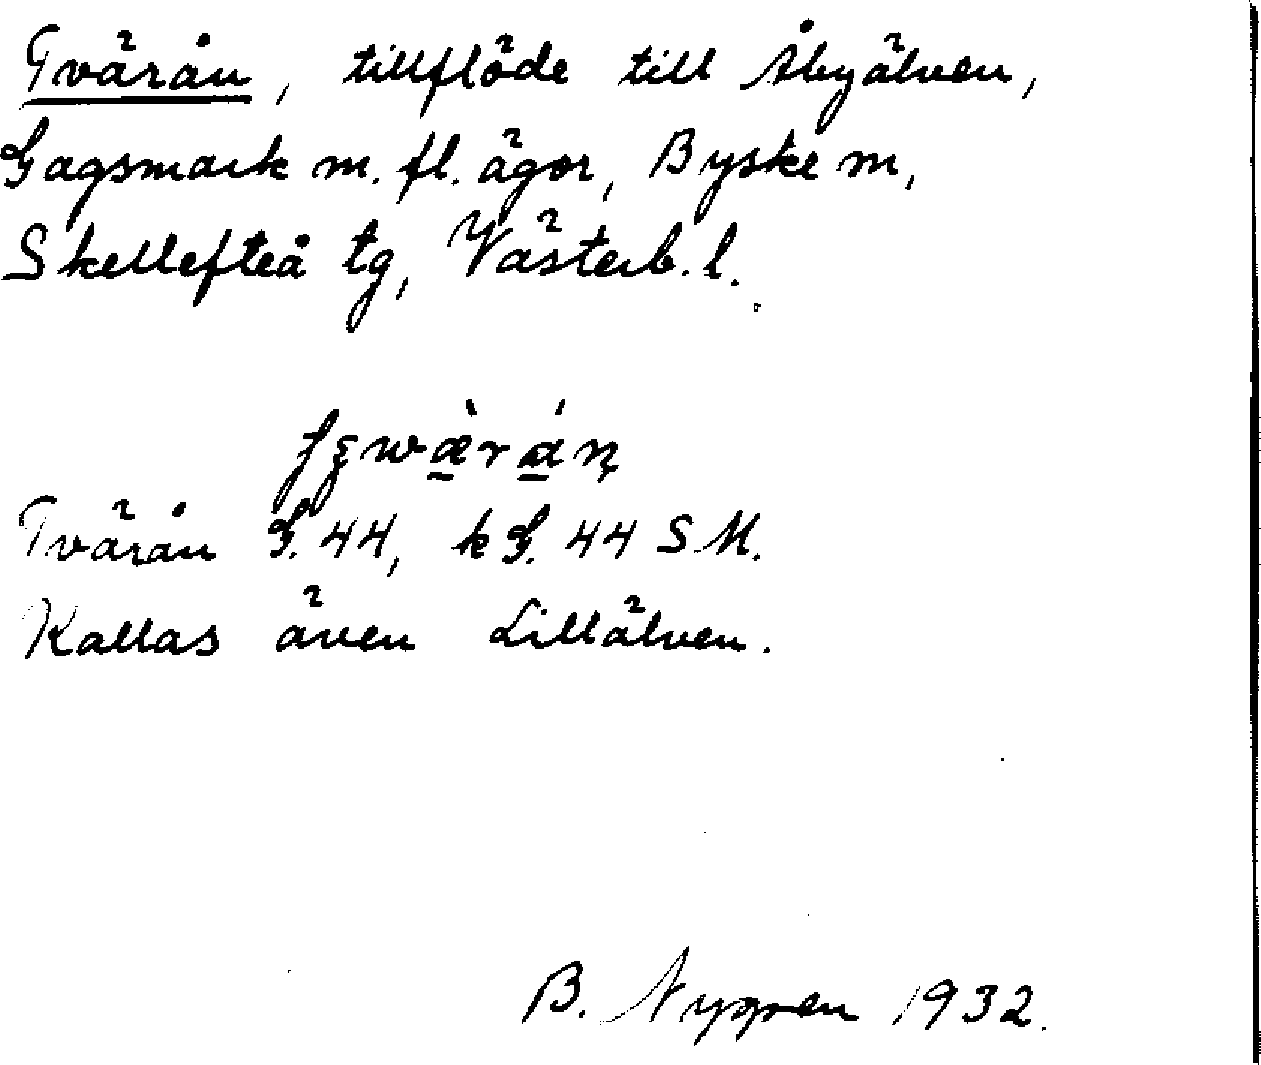 Tvärån, tillflöde till Åbyälven,
Gagsmark m. fl. ägor, Byske m,
Skellefteå tg, Västerb. l.
Tvärån G. 44, k G. 44 SM.
Kallas även Lillälven.
B. Nygren 1932.